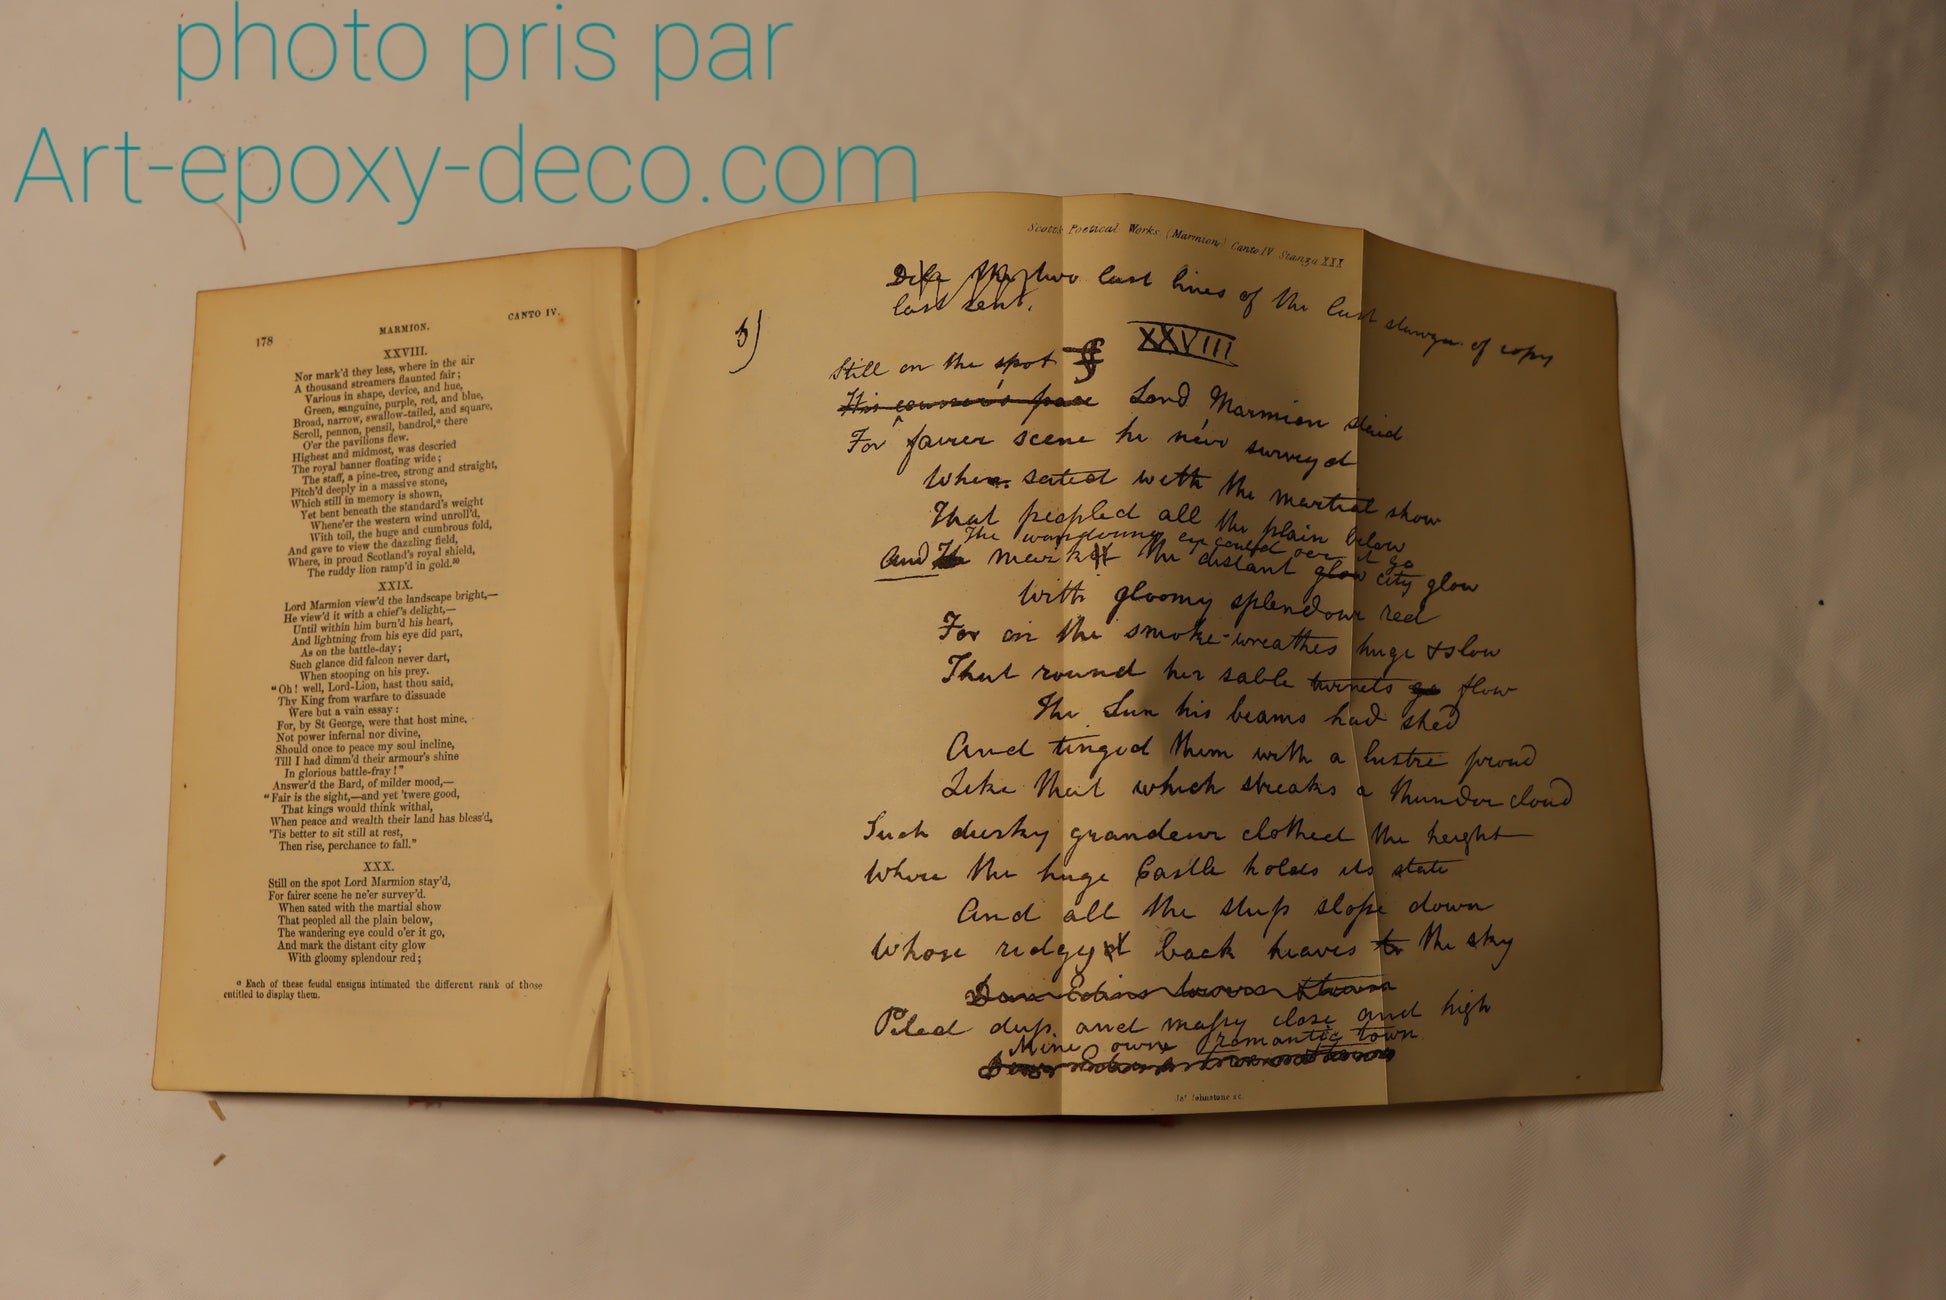 photo pris par
Art-epoxy-deco.com
178
MARMION.
CANTO IV.
XXVIII.
Nor mark'd they less, where in the air
A thousand streamers flaunted fair;
Various in shape, device, and hue,
Green, sanguine, purple, red, and blue,
Broad, narrow, swallow-tailed, and square,
Scroll, pennon, pensil, bandrol,ᵃ there
O'er the pavilions flew.
Highest and midmost, was descried
The royal banner floating wide;
The staff, a pine-tree, strong and straight,
Pitch'd deeply in a massive stone,
Which still in memory is shown,
Yet bent beneath the standard's weight
Whene'er the western wind unroll'd,
With toil, the huge and cumbrous fold,
And gave to view the dazzling field,
Where, in proud Scotland's royal shield,
The ruddy lion ramp'd in gold.
XXIX.
Lord Marmion view'd the landscape bright,—
He view'd it with a chief's delight,—
Until within him burn'd his heart,
And lightning from his eye did part,
As on the battle-day;
Such glance did falcon never dart,
When stooping on his prey.
"Oh! well, Lord-Lion, hast thou said,
Thy King from warfare to dissuade
Were but a vain essay:
For, by St George, were that host mine,
Not power infernal nor divine,
Should once to peace my soul incline,
Till I had dimm'd their armour's shine
In glorious battle-fray!"
Answer'd the Bard, of milder mood,—
"Fair is the sight,—and yet 'twere good,
That kings would think withal,
When peace and wealth their land has bless'd,
'Tis better to sit still at rest,
Then rise, perchance to fall."
XXX.
Still on the spot Lord Marmion stay'd,
For fairer scene he ne'er survey'd.
When sated with the martial show
That peopled all the plain below,
The wandering eye could o'er it go,
And mark the distant city glow
With gloomy splendour red;
ᵃ Each of these feudal ensigns intimated the different rank of those
entitled to display them.
Scott's Poetical Works. (Marmion) Canto IV Stanza XXX
two last lines of the last stanza of copy
last sent.
XXVIII
Still on the spot
His courser's pace Lord Marmion staid
For fairer scene he neer surveyd
When sated with the martial show
That peopled all the plain below
The wandering eye could oer it go
And the mark the distant glow city glow
With gloomy splendour red
For on the smoke-wreathes huge & slow
That round her sable turrets flow
The Sun his beams had shed
And tinged them with a lustre proud
Like that which streaks a thunder cloud
Such dusky grandeur clothed the height
Where the huge Castle holds its state
And all the steep slope down
Whose ridgy back heaves to the sky
Piled deep and massy close and high
Mine own romantic town
Jas Johnstone sc.